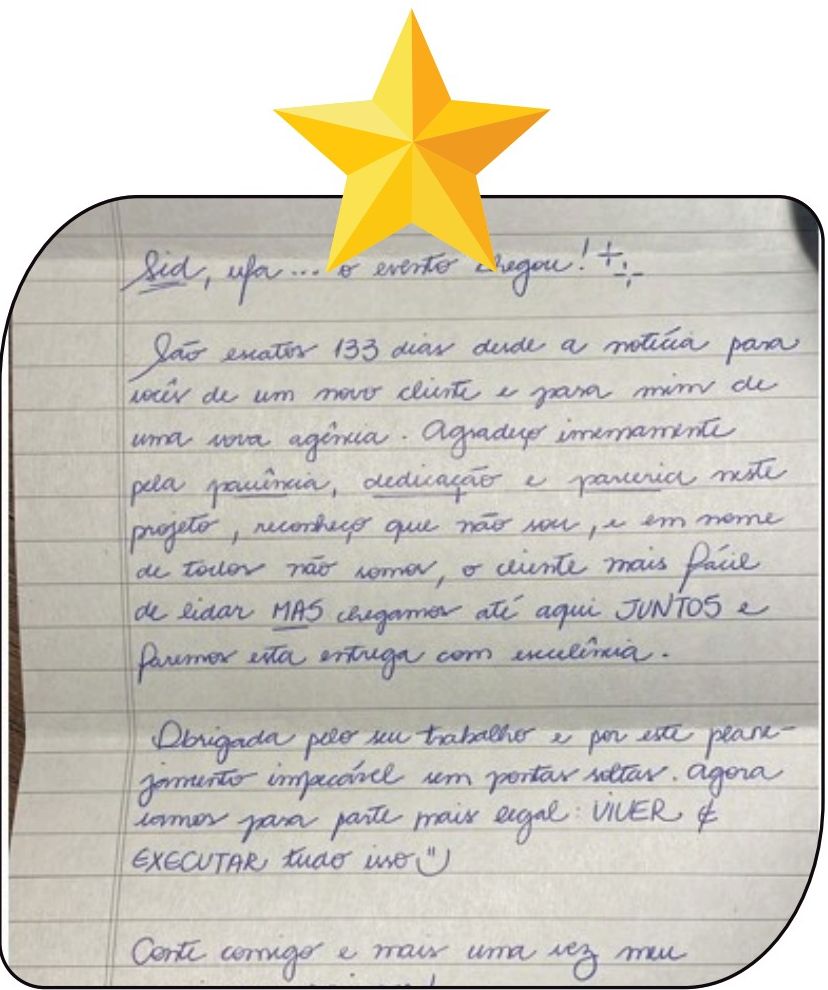 Sid, ufa... o evento chegou!
São exatos 133 dias desde a notícia para
vocês de um novo cliente e para mim de
uma nova agência. Agradeço imensamente
pela paciência, dedicação e parceria neste
projeto, reconheço que não sou, e em nome
de todos não somos, o cliente mais fácil
de lidar MAS chegamos até aqui JUNTOS e
faremos esta entrega com excelência.
Obrigada pelo seu trabalho e por este plane-
jamento impecável sem pontas soltas. Agora
vamos para parte mais legal: VIVER &
EXECUTAR tudo isso
Conte comigo e mais uma vez meu